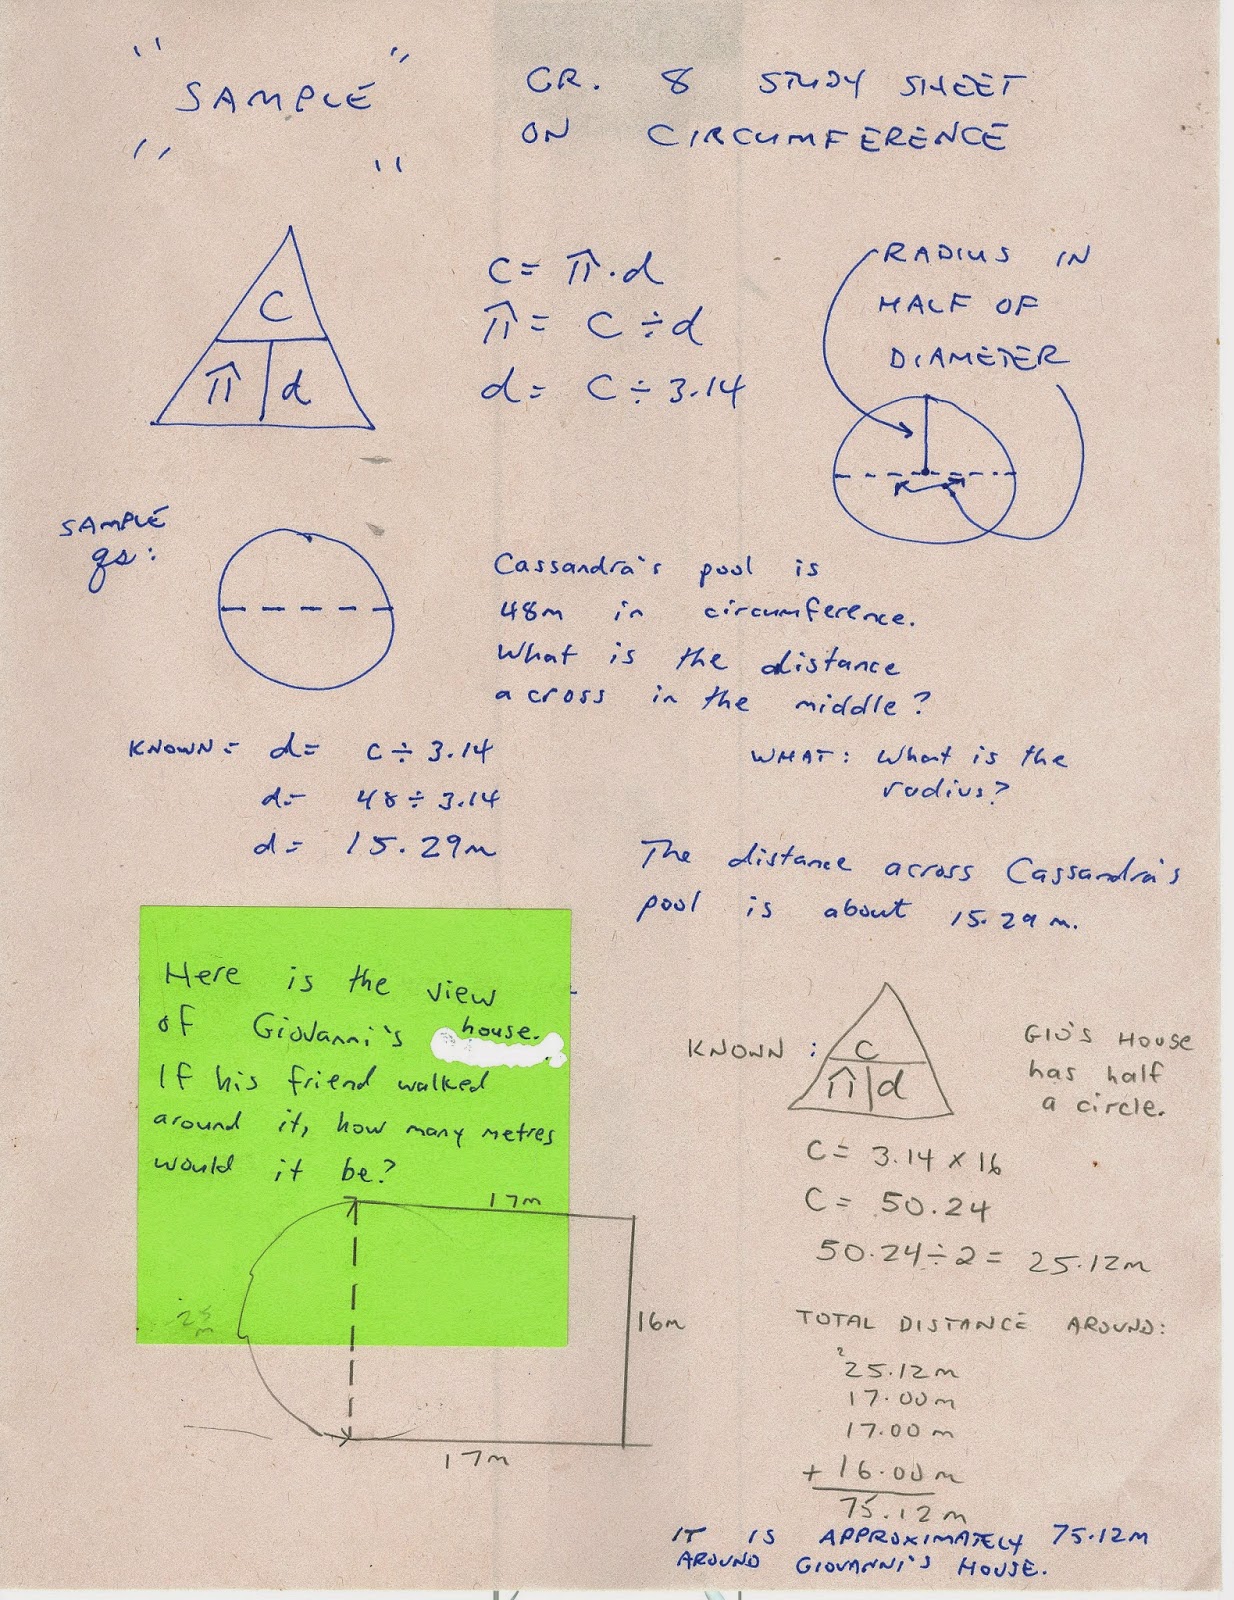 "SAMPLE"
GR. 8 STUDY SHEET
ON CIRCUMFERENCE
C
π d
C = π·d
π = C ÷ d
d = C ÷ 3.14
RADIUS IN
HALF OF
DIAMETER
SAMPLE
qs:
Cassandra's pool is
48m in circumference.
What is the distance
across in the middle?
KNOWN = d = C ÷ 3.14
d = 48 ÷ 3.14
d = 15.29m
WHAT: What is the
radius?
The distance across Cassandra's
pool is about 15.29 m.
Here is the view
of Giovanni's house.
If his friend walked
around it, how many metres
would it be?
17m
16m
17m
KNOWN :
C
π d
GIO'S HOUSE
has half
a circle.
C = 3.14 x 16
C = 50.24
50.24 ÷ 2 = 25.12m
TOTAL DISTANCE AROUND:
2
25.12m
17.00m
17.00m
+ 16.00m
75.12m
IT IS APPROXIMATELY 75.12m
AROUND GIOVANNI'S HOUSE.